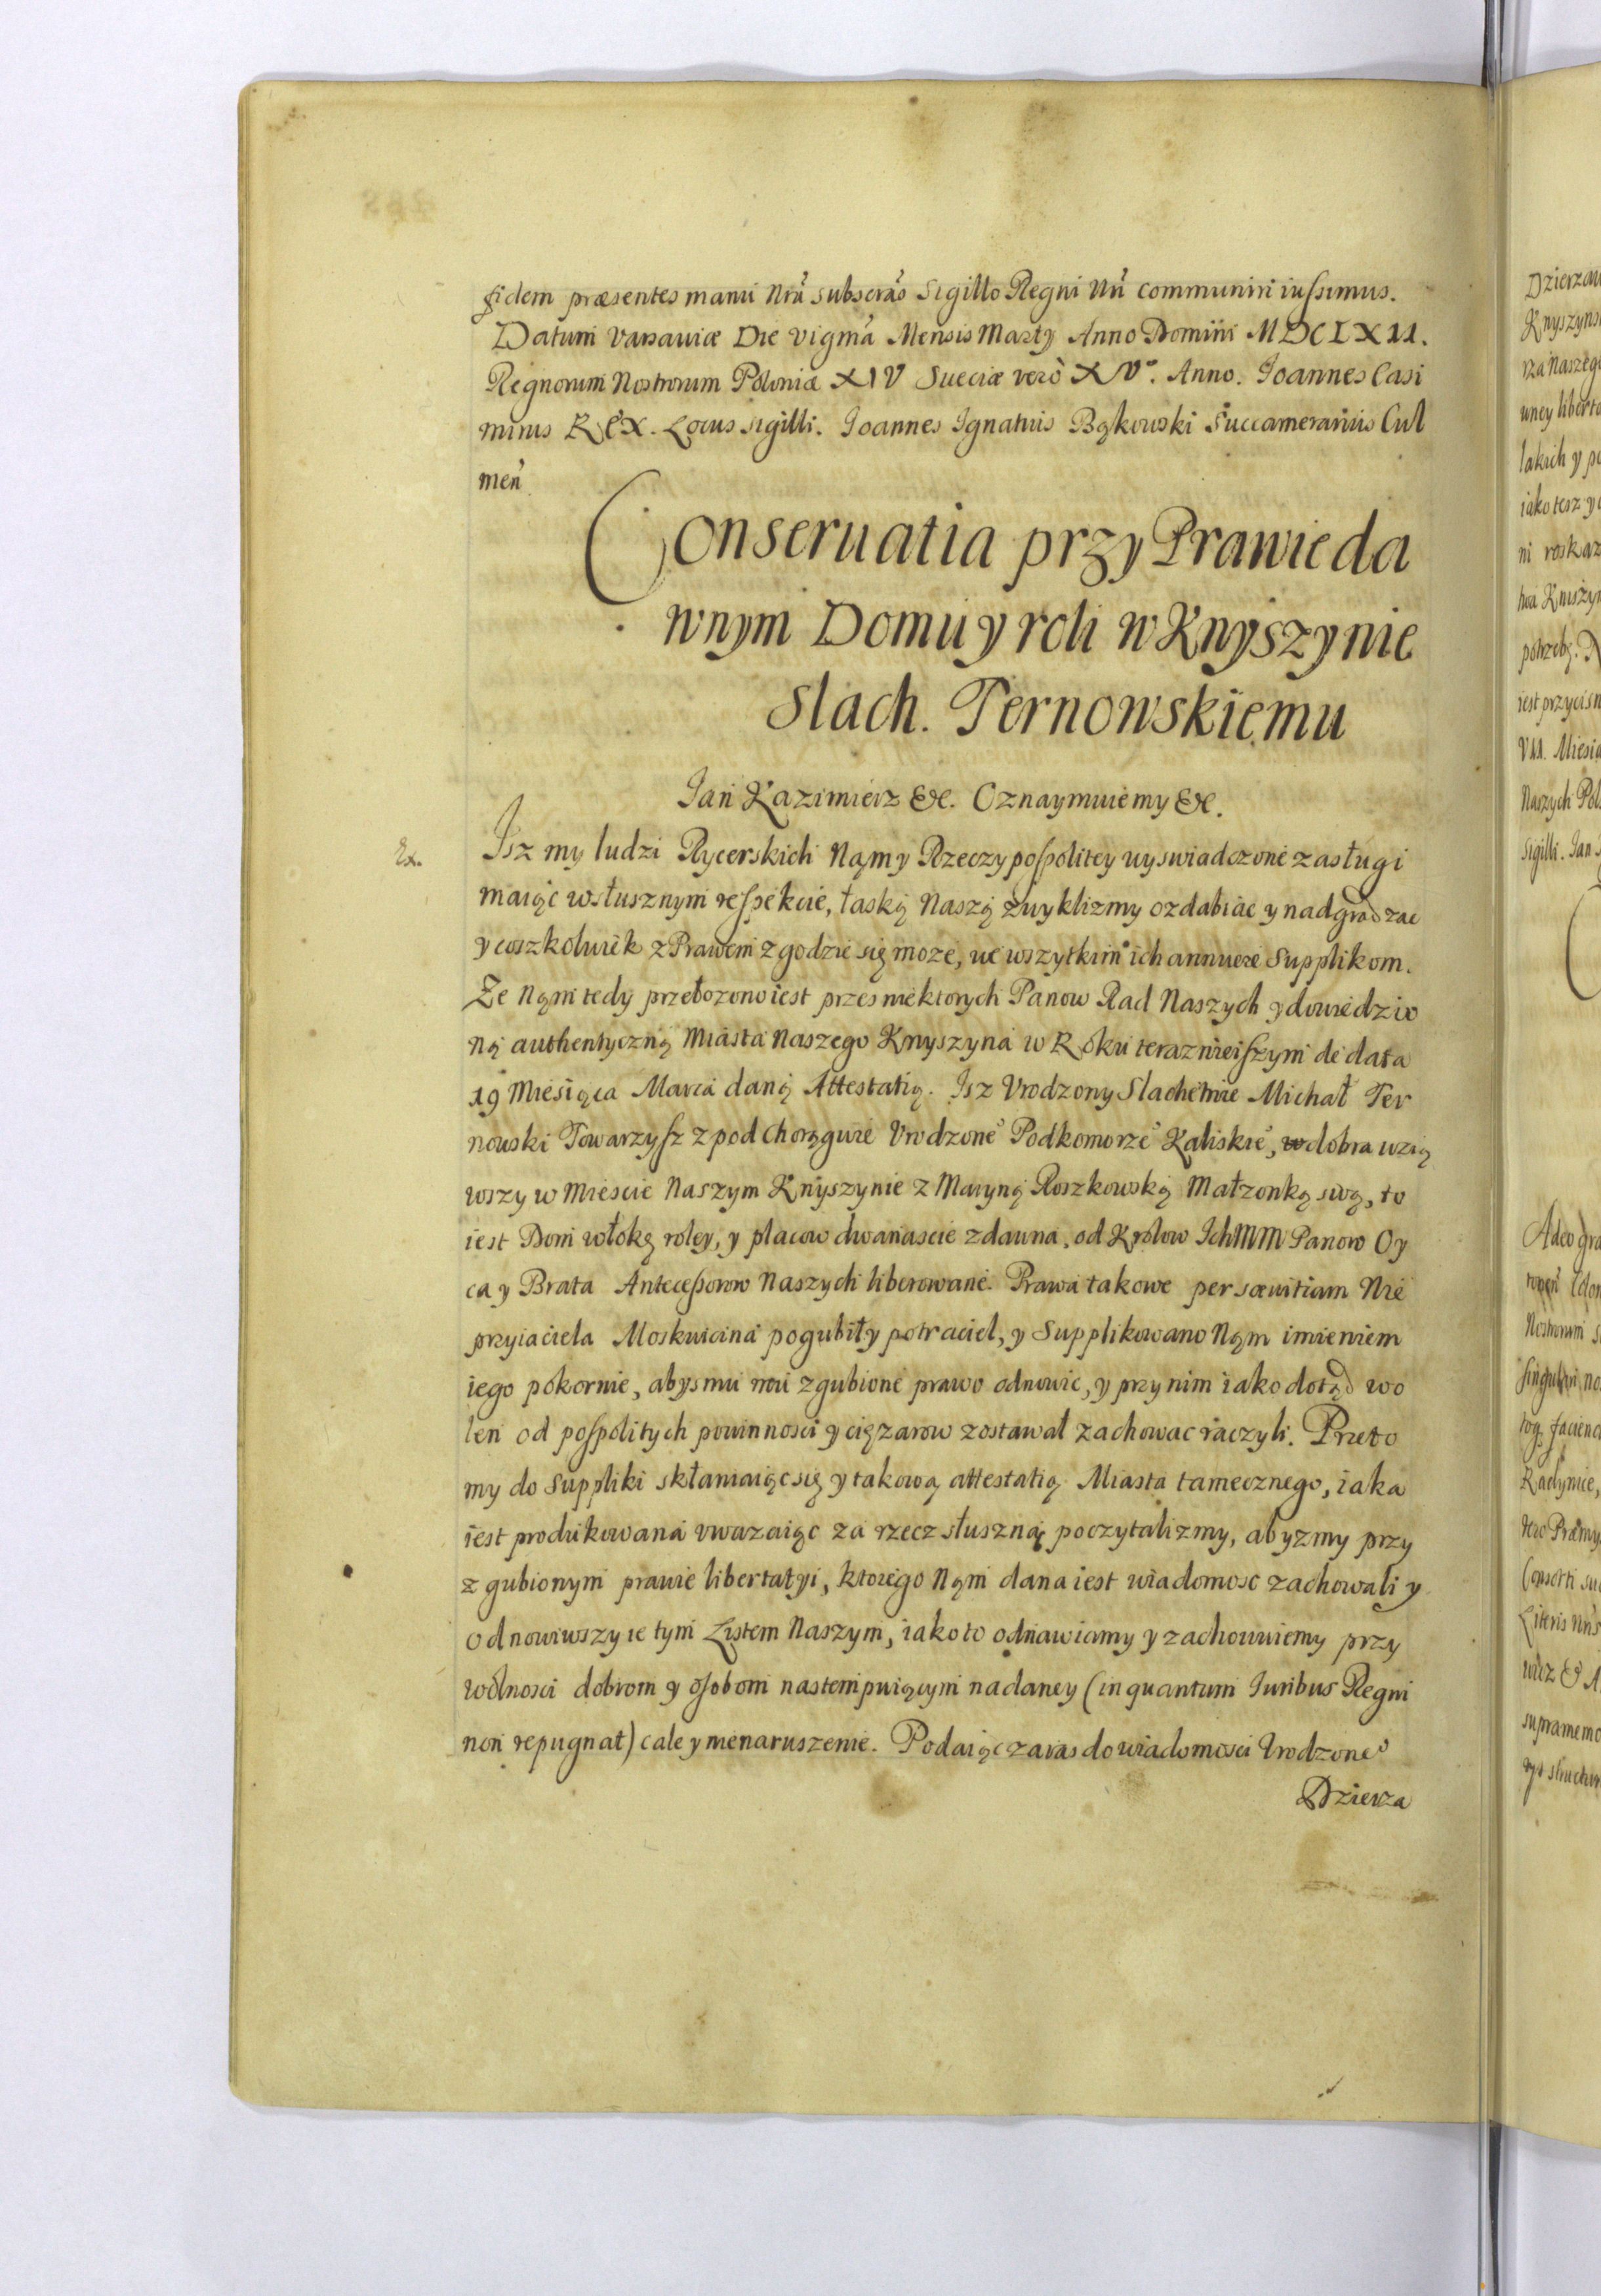 fidem præsentes manu Nrã subscrãs Sigillo Regni Nrĩ communiri iussimus.
Datum Varsauiæ Die vigmã Mensis Marty Anno Domini MDCLXII.
Regnorum Nostrorum Poloniæ XIV Sueciæ verò XVº. Anno. Joannes Casi
mirus REX. Locus sigilli. Joannes Ignatius Bąkowski Succamerarius Cul
men̄
Conseruatia przy Prawie da
wnym Domu y roli w Knyszynie
Slach. Ternowskiemu
Jan Kazimierz &c. Oznaymuiemy &c.
Ex.
Jsz my ludzi Rycerskich Nąm y Rzeczypospolitey wyswiadczone zasługi
maiąc wsłusznym respekcie, łaską Naszą zwyklizmy ozdabiac y nadgradzac
y coszkolwiek z Prawem zgodzic się moze, we wszytkim ich annuere Supplikom.
Ze Nąm tedy przełozono iest przes niektorych Panow Rad Naszych y dowiedzio
ną authentyczną Miasta Naszego Knyszyna w Roku terazniejszym de data
19 Miesiąca Marca daną Attestatią. Jsz Vrodzony Slachetnie Michał Ter
nowski Towarzysz z pod Chorągwie Vrodzone° Podkomorze° Kaliskie°, dobra wzią
wszy w Miescie Naszym Knyszynie z Maryną Roszkowską Małzonką swą, to
iest Dom włokę roley, y placow dwanascie zdawna, od Krolow Ich MM Panow Oy
ca y Brata Antecessorow Naszych liberowane. Prawa takowe per sævitiam Nie
przyiaciela Moskwicina pogubiły potraciel, y Supplikowano Nąm imieniem
iego pokornie, abysmu mu zgubione prawo odnowic, y przy nim iako dotąd wo
len od pospolitych powinnosci y cięzarow zostawał zachowac raczyli. Przeto
my do Suppliki skłaniaiąc się y takową attestatią Miasta tamecznego, iaka
iest produkowana vwazaiąc za rzecz słuszną poczytalizmy, abyzmy przy
zgubionym prawie libertatyi, ktorego Nąm dana iest wiadomosc zachowali y
odnowiwszy ie tym Listem Naszym, iakoto odnawiamy y zachowuiemy przy
wolnosci dobrom y osobom nastempuiącym nadaney (in quantum Juribus Regni
non repugnat) cale y nienaruszenie. Podaiąc zaras do wiadomosci Vrodzone°
Dzierza